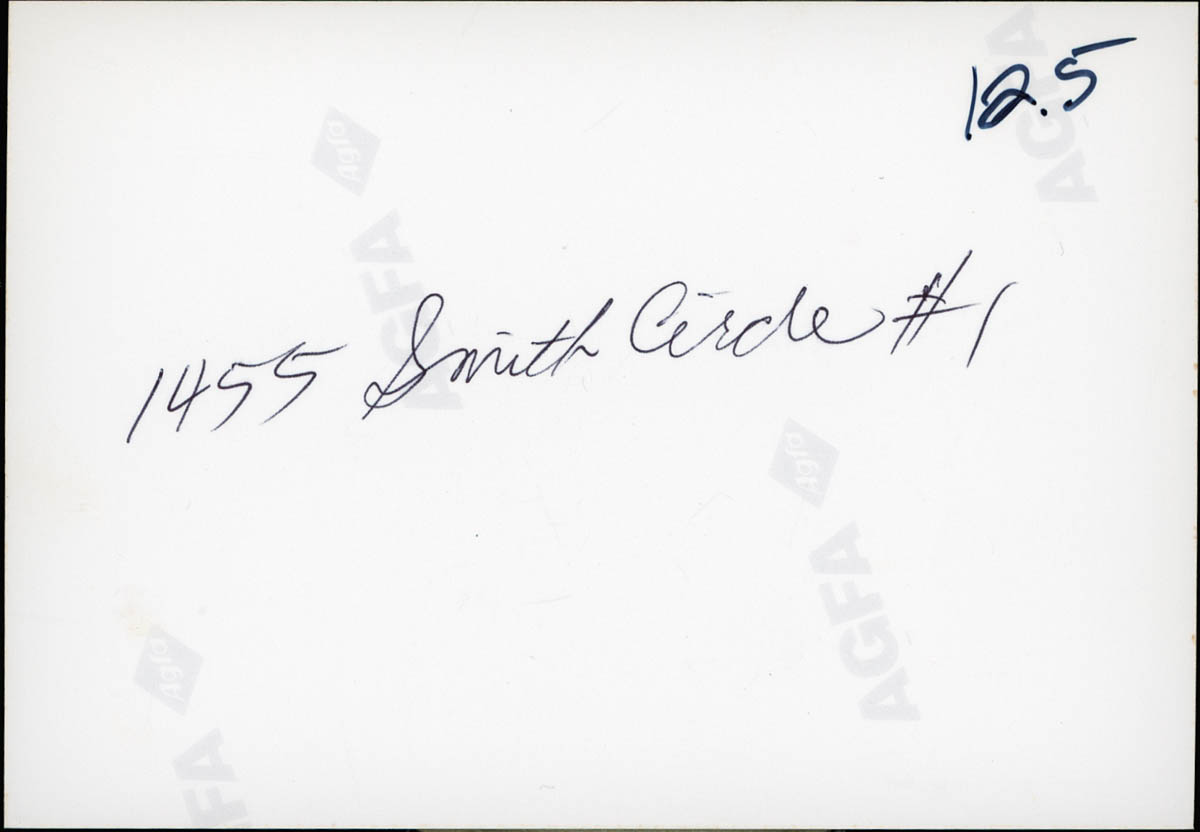 12.5
AGFA
Agfa
AGFA
1455 Smith Circle #1
Agfa
AGFA
Agfa
FA